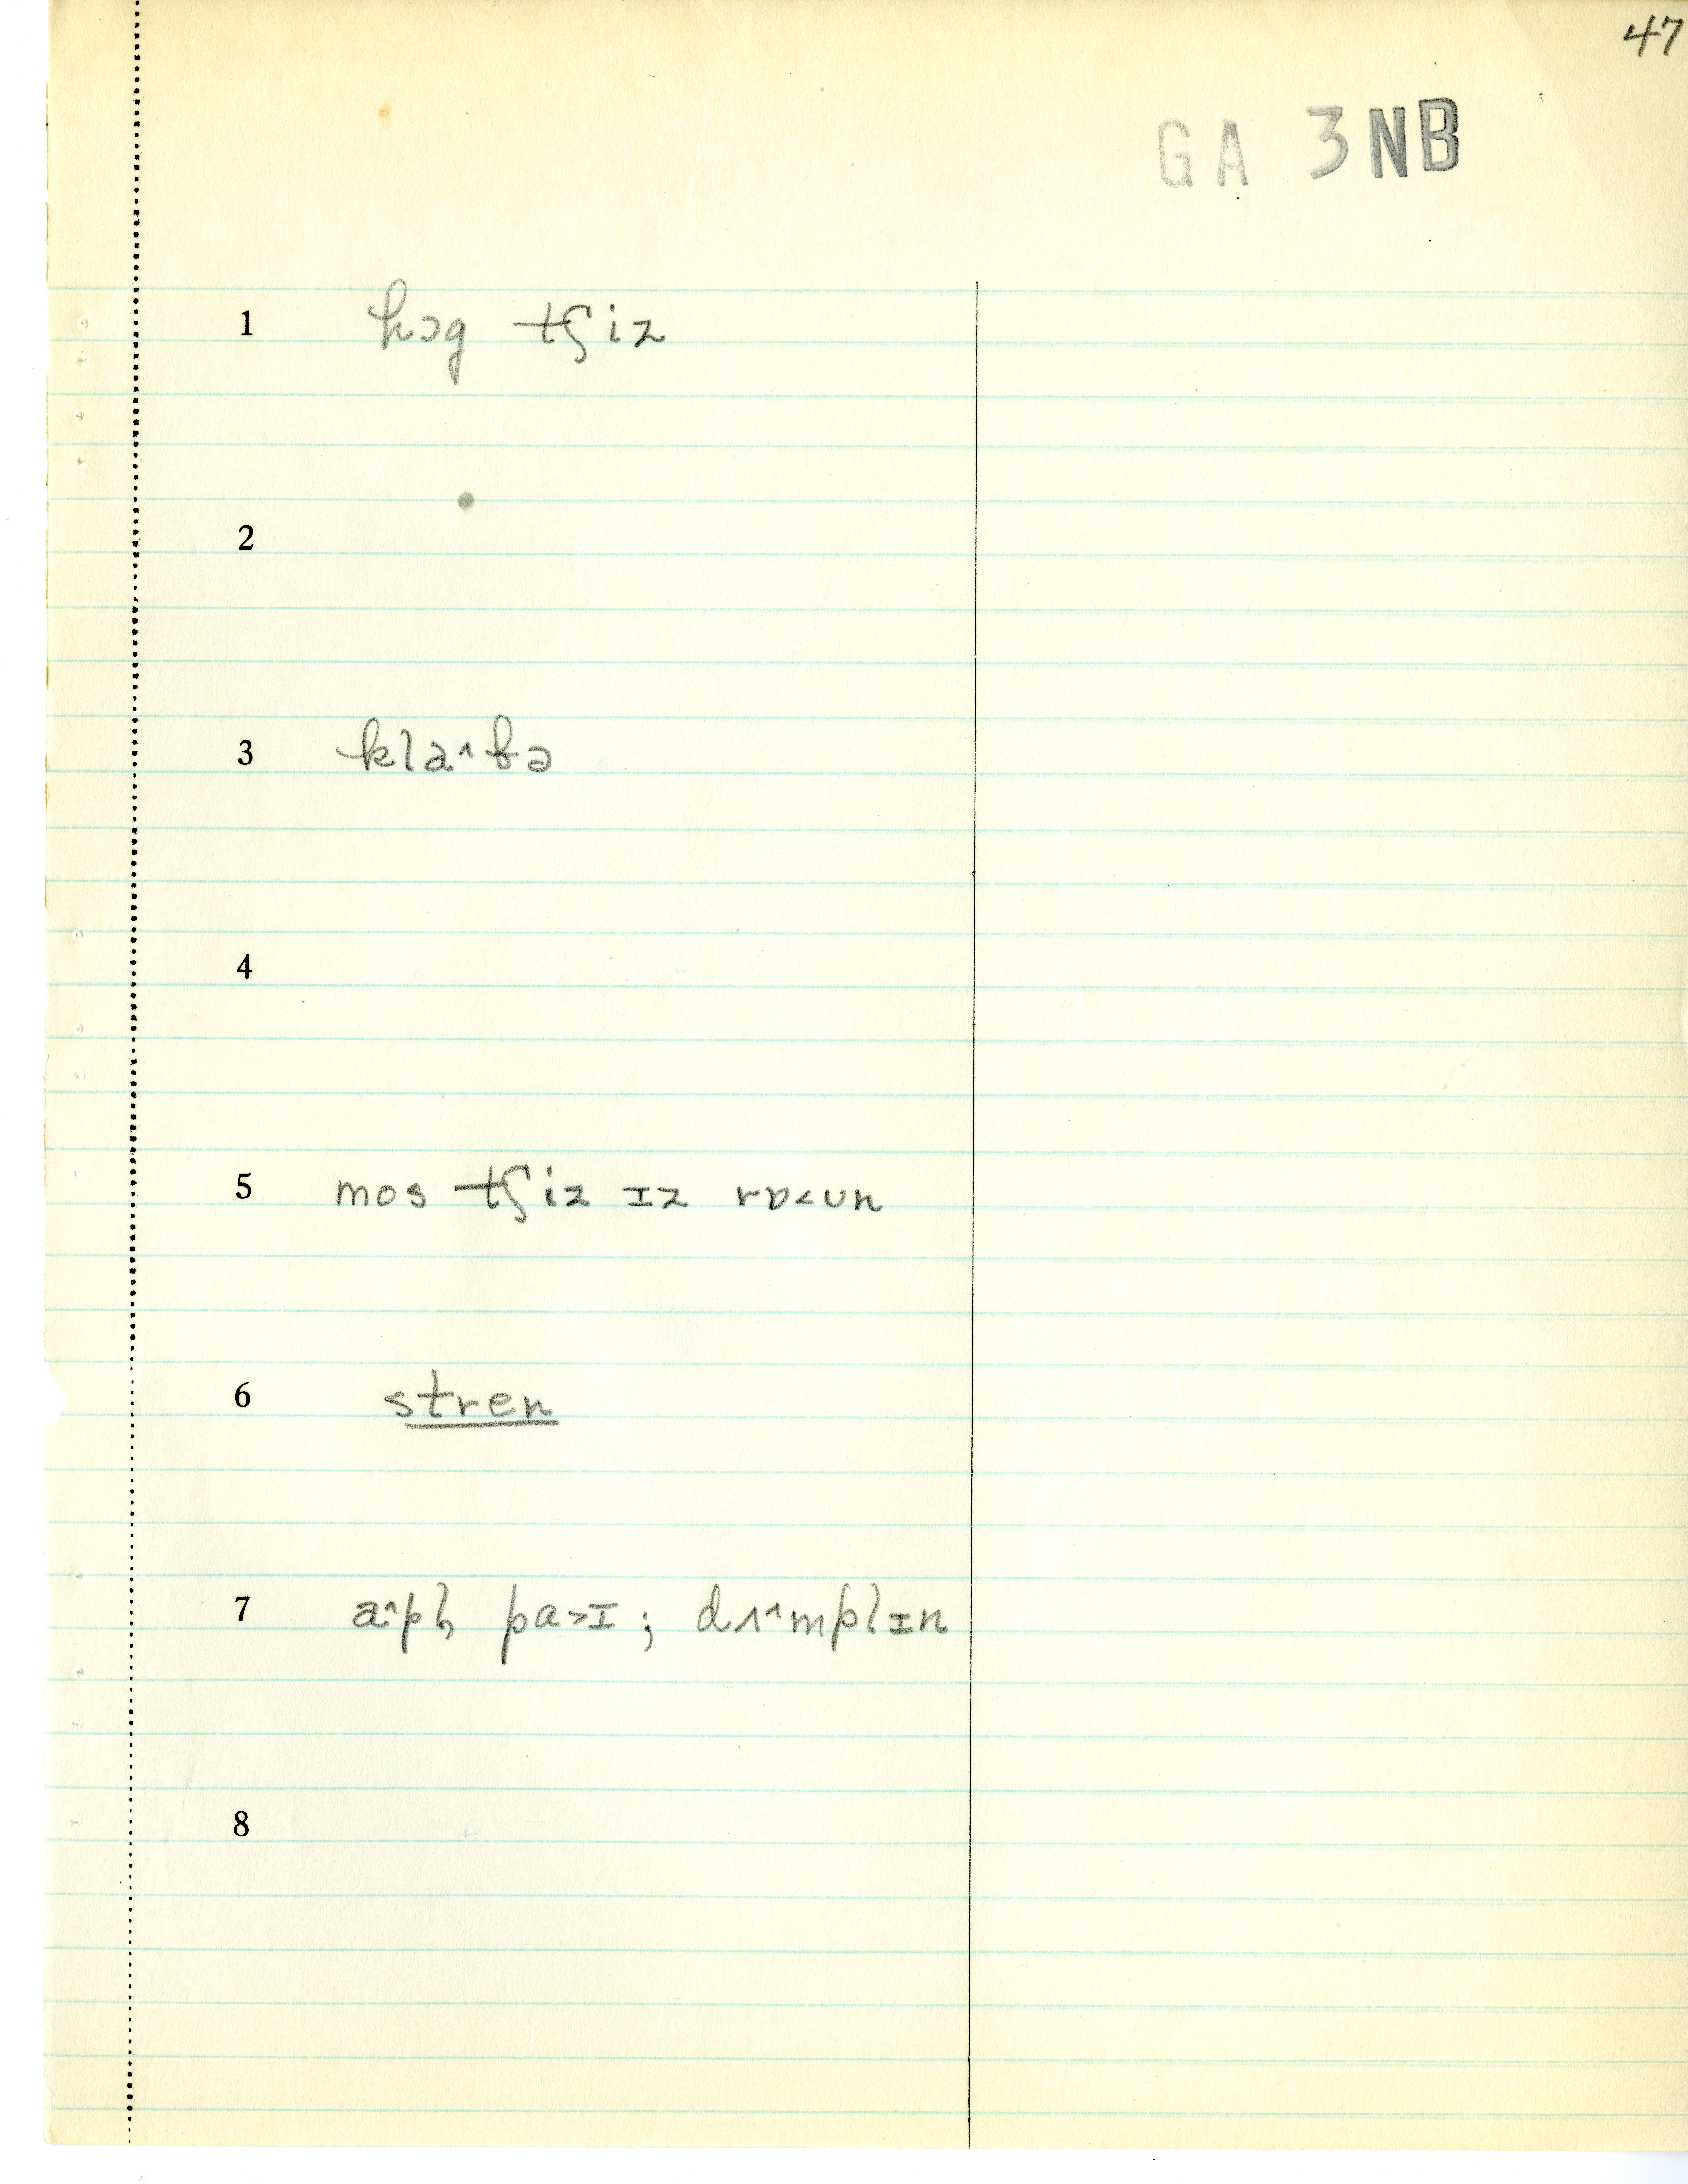 47
GA 3NB
1 hɔg tʃiz
2
3 klaˆbə
4
5 mos tʃiz ɪz rɒ˂ʊn
6 stren
7 aˆpl̩ pa˃ɪ; dʌˆmplɪn
8